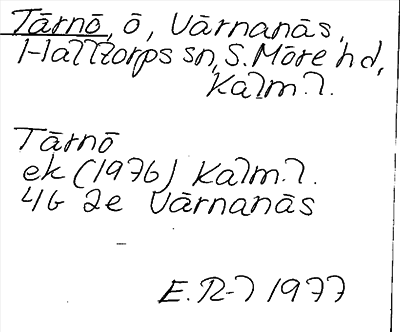 Tārnō, ō, Vārnanās,
Halltorps sn, S. Mōre hd,
Kalm. l.
Tārnō
ek (1976) Kalm. l.
4G 2e Vārnanās
E. R-l 1977